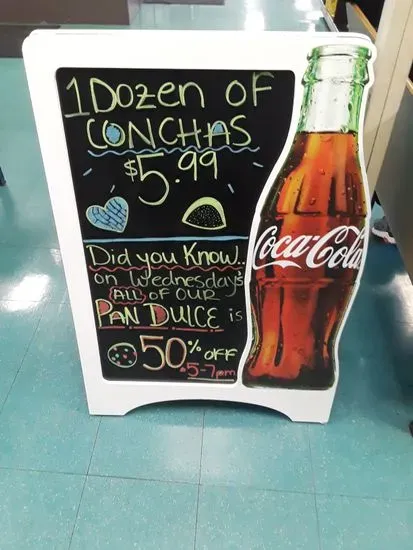 1 Dozen of
CONCHAS
$5.99
Did you Know..
on Wednesday's
ALL OF OUR
PAN DULCE is
50% OFF
5-7pm
Coca-Cola